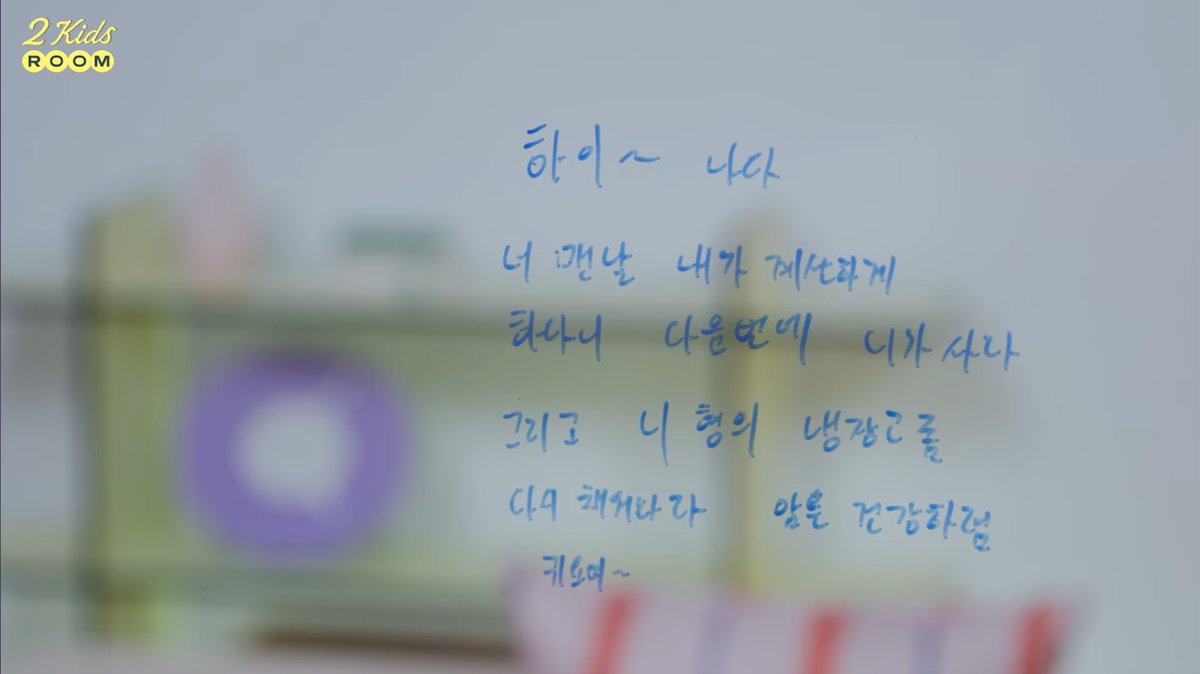 2 Kids
ROOM
하이~ 나다
너 맨날 내가 계산하게
하다니 다음번에 니가 사라
그리고 니 형의 냉장고를
암튼 건강하렴
키요미~